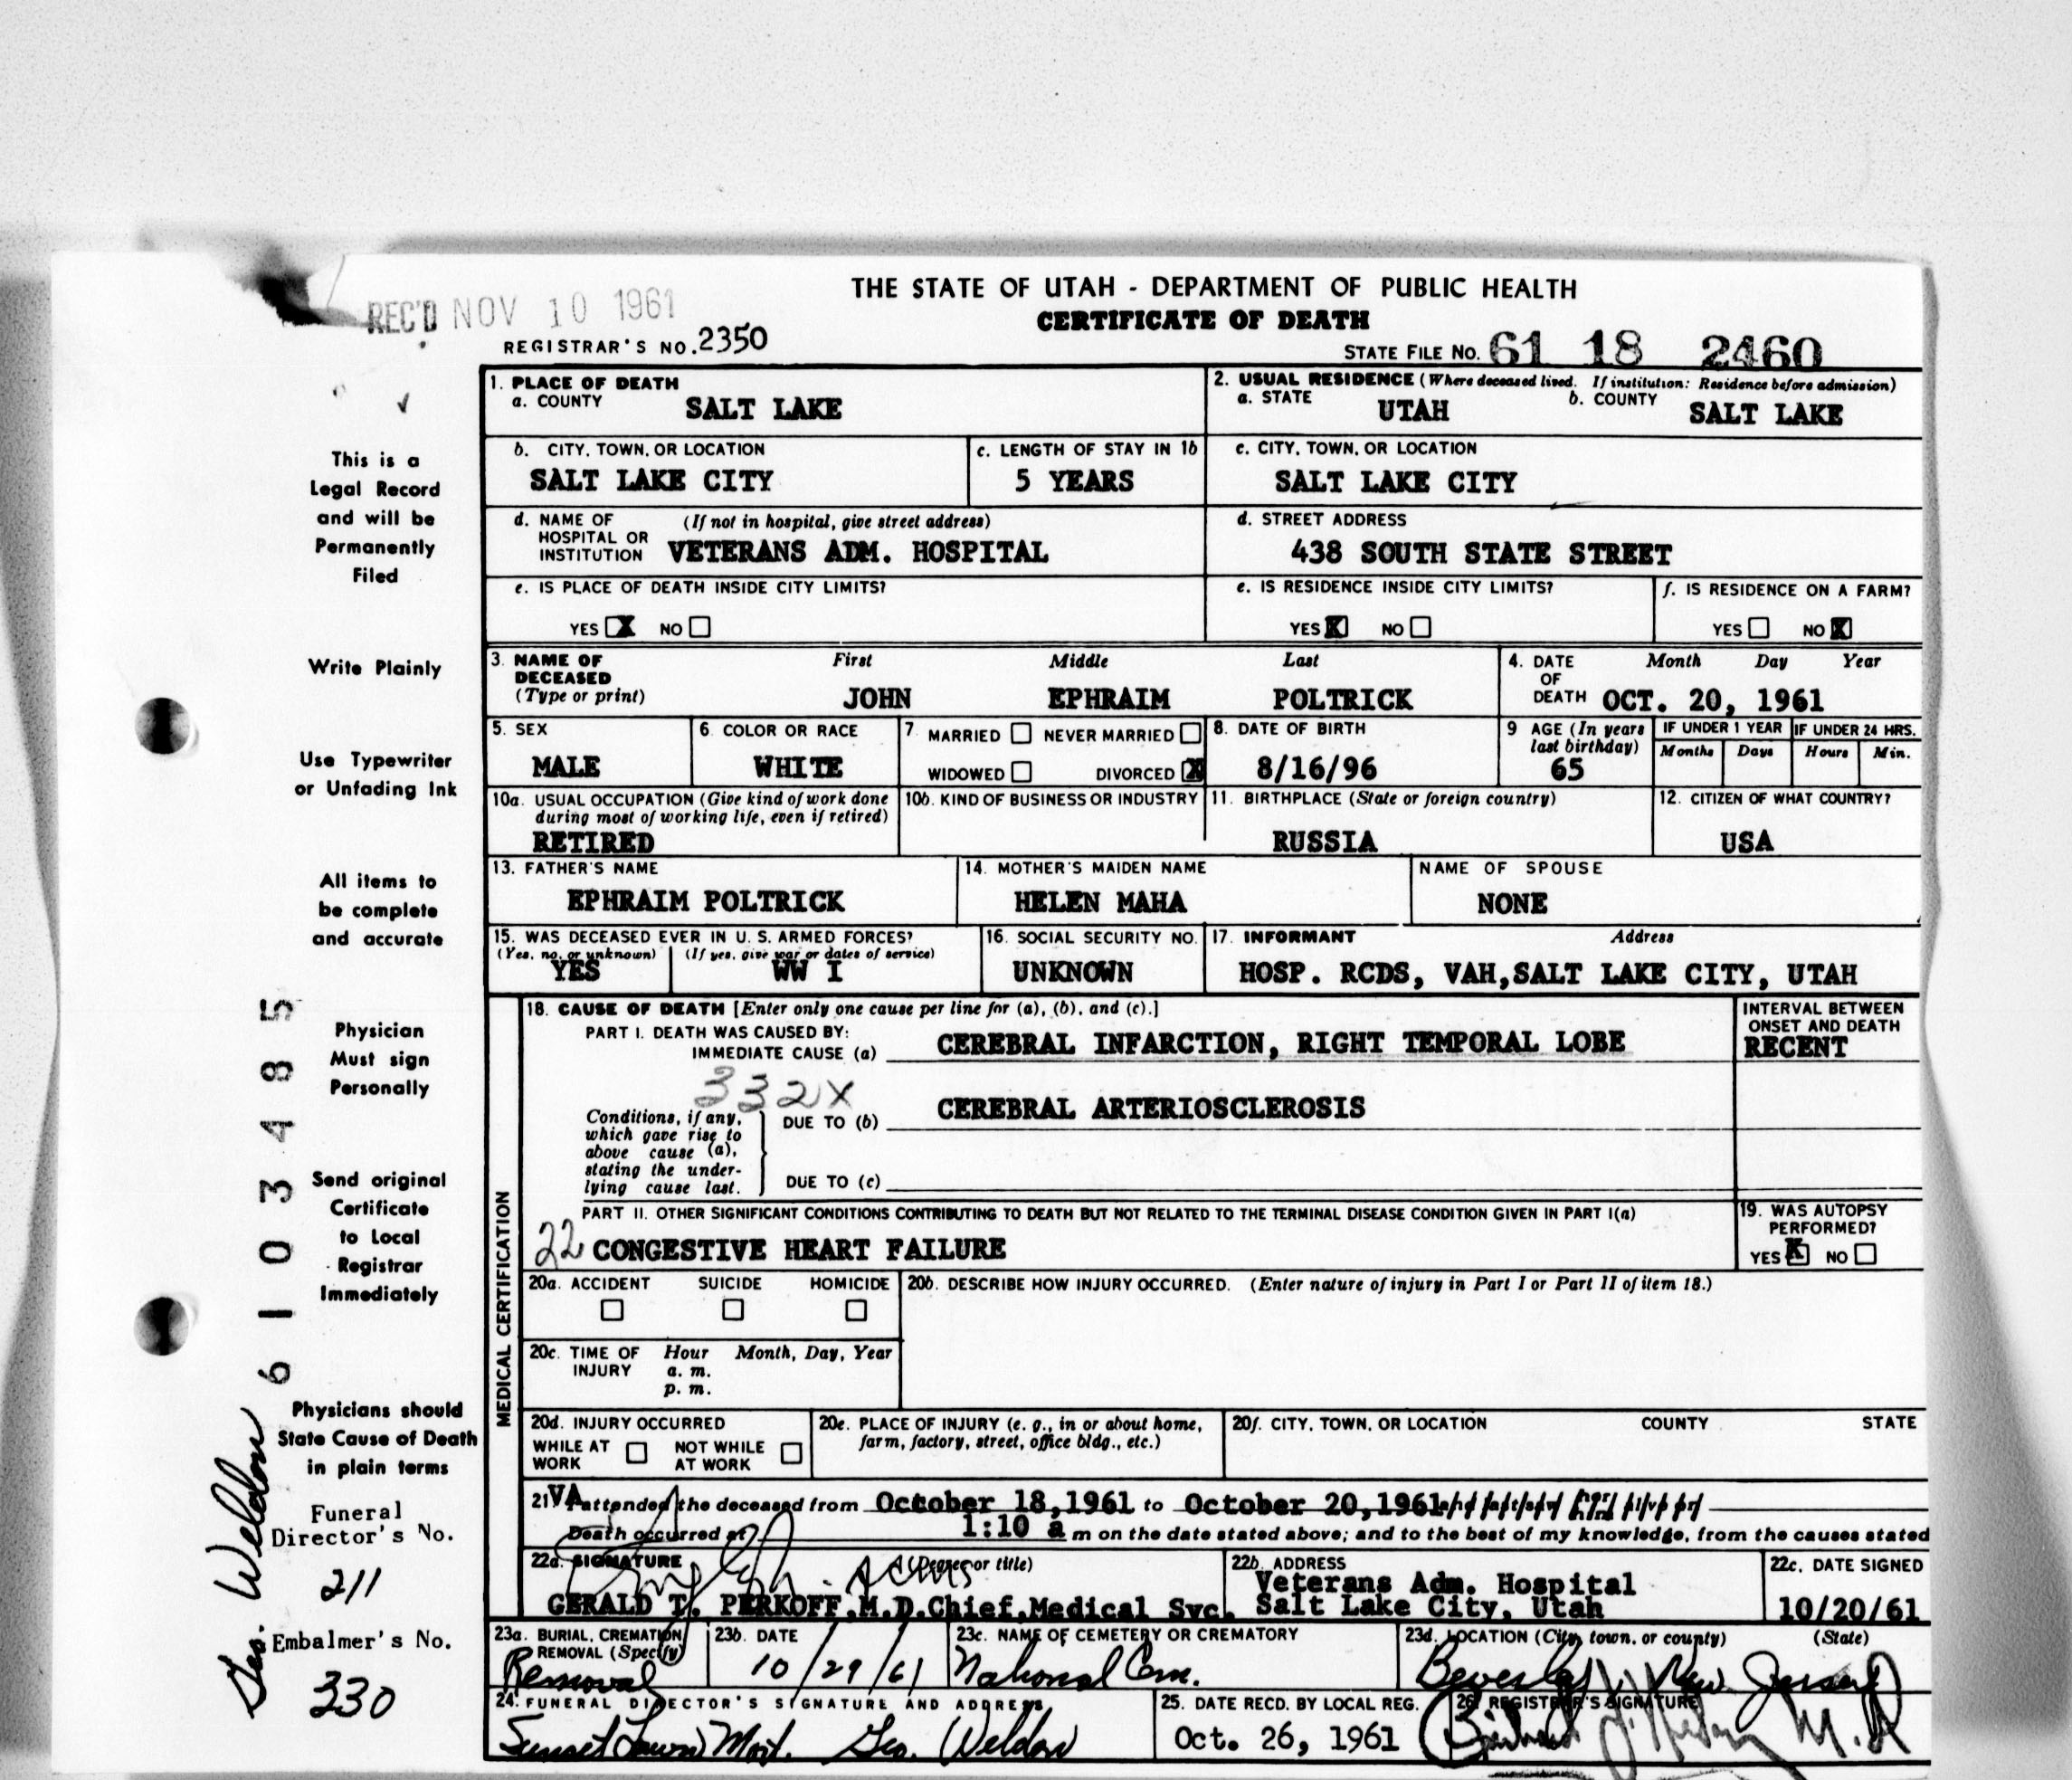 REC'D NOV 10 1961
THE STATE OF UTAH - DEPARTMENT OF PUBLIC HEALTH
CERTIFICATE OF DEATH
REGISTRAR'S NO. 2350
STATE FILE NO. 61 18 2460
This is a
Legal Record
and will be
Permanently
Filed
Write Plainly
Use Typewriter
or Unfading Ink
All items to
be complete
and accurate
Physician
Must sign
Personally
Send original
Certificate
to Local
Registrar
Immediately
Physicians should
State Cause of Death
in plain terms
Funeral
Director's No.
211
Embalmer's No.
330
Geo. Weldon
61 03485
1. PLACE OF DEATH
a. COUNTY SALT LAKE
2. USUAL RESIDENCE (Where deceased lived. If institution: Residence before admission)
a. STATE UTAH b. COUNTY SALT LAKE
b. CITY, TOWN, OR LOCATION
SALT LAKE CITY
c. LENGTH OF STAY IN 1b
5 YEARS
c. CITY, TOWN, OR LOCATION
SALT LAKE CITY
d. NAME OF (If not in hospital, give street address)
HOSPITAL OR
INSTITUTION VETERANS ADM. HOSPITAL
d. STREET ADDRESS
438 SOUTH STATE STREET
e. IS PLACE OF DEATH INSIDE CITY LIMITS?
YES X NO
e. IS RESIDENCE INSIDE CITY LIMITS?
YES X NO
f. IS RESIDENCE ON A FARM?
YES NO X
3. NAME OF DECEASED (Type or print)
First Middle Last
JOHN EPHRAIM POLTRICK
4. DATE OF DEATH
Month Day Year
OCT. 20, 1961
5. SEX
MALE
6. COLOR OR RACE
WHITE
7 MARRIED NEVER MARRIED
WIDOWED DIVORCED X
8. DATE OF BIRTH
8/16/96
9 AGE (In years last birthday)
65
IF UNDER 1 YEAR
Months Days
IF UNDER 24 HRS.
Hours Min.
10a. USUAL OCCUPATION (Give kind of work done
during most of working life, even if retired)
RETIRED
10b. KIND OF BUSINESS OR INDUSTRY
11. BIRTHPLACE (State or foreign country)
RUSSIA
12. CITIZEN OF WHAT COUNTRY?
USA
13. FATHER'S NAME
EPHRAIM POLTRICK
14. MOTHER'S MAIDEN NAME
HELEN MAHA
NAME OF SPOUSE
NONE
15. WAS DECEASED EVER IN U. S. ARMED FORCES?
(Yes, no, or unknown) (If yes, give war or dates of service)
YES WW I
16. SOCIAL SECURITY NO.
UNKNOWN
17. INFORMANT Address
HOSP. RCDS, VAH, SALT LAKE CITY, UTAH
MEDICAL CERTIFICATION
18. CAUSE OF DEATH [Enter only one cause per line for (a), (b), and (c).]
PART I. DEATH WAS CAUSED BY:
IMMEDIATE CAUSE (a) CEREBRAL INFARCTION, RIGHT TEMPORAL LOBE
INTERVAL BETWEEN
ONSET AND DEATH
RECENT
332X
Conditions, if any,
which gave rise to
above cause (a),
stating the under-
lying cause last.
DUE TO (b) CEREBRAL ARTERIOSCLEROSIS
DUE TO (c)
PART II. OTHER SIGNIFICANT CONDITIONS CONTRIBUTING TO DEATH BUT NOT RELATED TO THE TERMINAL DISEASE CONDITION GIVEN IN PART I(a)
22 CONGESTIVE HEART FAILURE
19. WAS AUTOPSY
PERFORMED?
YES X NO
20a. ACCIDENT SUICIDE HOMICIDE
20b. DESCRIBE HOW INJURY OCCURRED. (Enter nature of injury in Part I or Part II of item 18.)
20c. TIME OF INJURY Hour Month, Day, Year
a. m.
p. m.
20d. INJURY OCCURRED
WHILE AT WORK NOT WHILE AT WORK
20e. PLACE OF INJURY (e. g., in or about home,
farm, factory, street, office bldg., etc.)
20f. CITY, TOWN, OR LOCATION COUNTY STATE
21. VA attended the deceased from October 18, 1961 to October 20, 1961
Death occurred at 1:10 a m on the date stated above; and to the best of my knowledge, from the causes stated
22a. SIGNATURE (Degree or title)
GERALD T. PERKOFF, M.D. Chief, Medical Svc.
22b. ADDRESS
Veterans Adm. Hospital
Salt Lake City, Utah
22c. DATE SIGNED
10/20/61
23a. BURIAL, CREMATION,
REMOVAL (Specify)
Removal
23b. DATE
10/29/61
23c. NAME OF CEMETERY OR CREMATORY
National Cem.
23d. LOCATION (City, town, or county) (State)
Beverly, New Jersey
24. FUNERAL DIRECTOR'S SIGNATURE AND ADDRESS
Sunset Lawn Mort. Geo. Weldon
25. DATE RECD. BY LOCAL REG.
Oct. 26, 1961
26. REGISTRAR'S SIGNATURE
M.D.